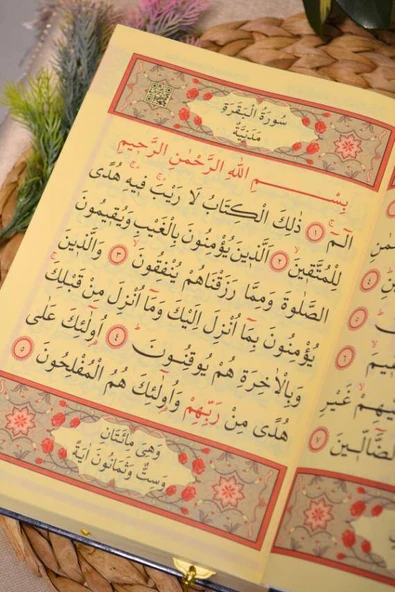 سُورَةُ الْبَقَرَةِ
مَدَنِيَّةٌ
بِسْمِ اللهِ الرَّحْمٰنِ الرَّحٖيمِ
الٓمٓ ﴿١﴾ ذٰلِكَ الْكِتَابُ لَا رَيْبَ فٖيهِ هُدًى
لِلْمُتَّقٖينَ ﴿٢﴾ اَلَّذٖينَ يُؤْمِنُونَ بِالْغَيْبِ وَيُقٖيمُونَ
الصَّلٰوةَ وَمِمَّا رَزَقْنَاهُمْ يُنْفِقُونَ ﴿٣﴾ وَالَّذٖينَ
يُؤْمِنُونَ بِمَٓا اُنْزِلَ اِلَيْكَ وَمَٓا اُنْزِلَ مِنْ قَبْلِكَ
وَبِالْاٰخِرَةِ هُمْ يُوقِنُونَ ﴿٤﴾ اُو۬لٰٓئِكَ عَلٰى
هُدًى مِنْ رَبِّهِمْ وَاُو۬لٰٓئِكَ هُمُ الْمُفْلِحُونَ ﴿٥﴾
وَهِىَ مِائَتَانِ
وَسِتٌّ وَثَمَانُونَ اٰيَةً
غَيْرِ
الضَّٓالّٖينَ ﴿٧﴾